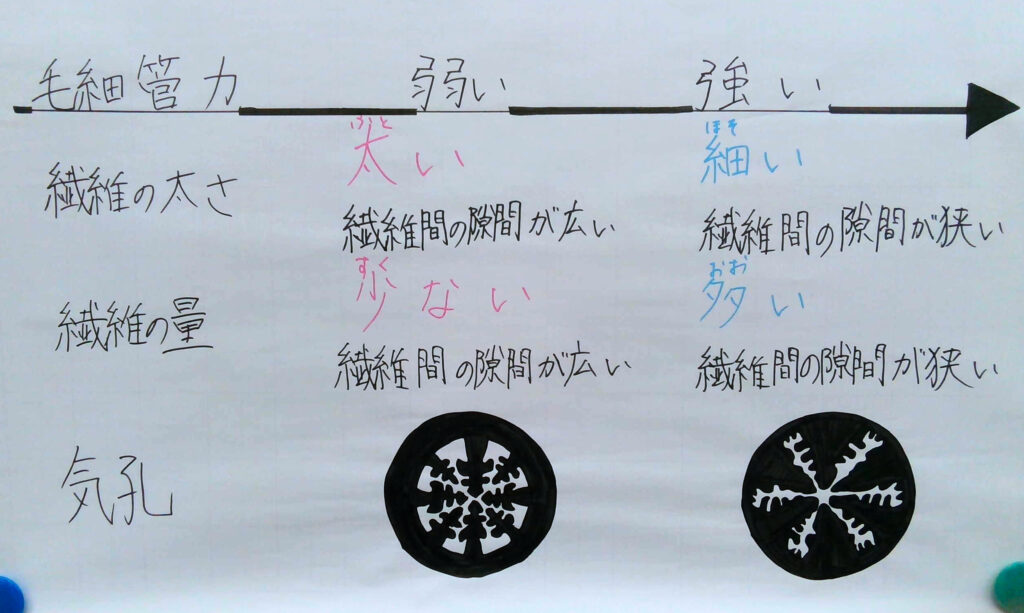 毛細管力 弱い 強い
ふと ほそ
繊維の太さ 太い 細い
繊維間の隙間が広い 繊維間の隙間が狭い
すく おお
繊維の量 少ない 多い
繊維間の隙間が広い 繊維間の隙間が狭い
気孔